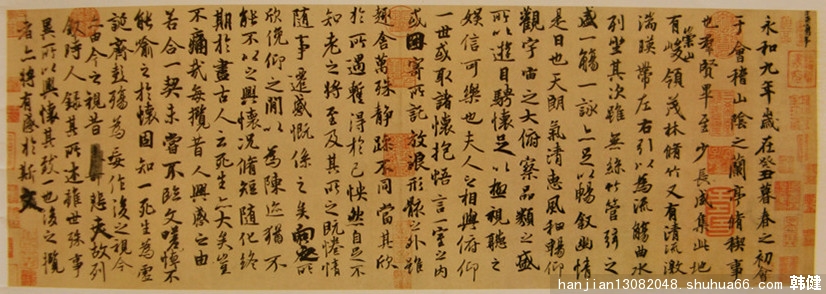 永和九年歲在癸丑暮春之初會
于會稽山陰之蘭亭脩稧事
也羣賢畢至少長咸集此地
有崇山峻領茂林脩竹又有清流激
湍暎帶左右引以為流觴曲水
列坐其次雖無絲竹管弦之
盛一觴一詠亦足以暢敘幽情
是日也天朗氣清惠風和暢仰
觀宇宙之大俯察品類之盛
所以遊目騁懷足以極視聽之
娛信可樂也夫人之相與俯仰
一世或取諸懷抱悟言一室之內
或因寄所託放浪形骸之外雖
趣舍萬殊靜躁不同當其欣
於所遇蹔得於己怏然自足不
知老之將至及其所之既惓情
隨事遷感慨係之矣向之所
欣俛仰之間以為陳迹猶不
能不以之興懷況脩短隨化終
期於盡古人云死生亦大矣豈
不痛哉每攬昔人興感之由
若合一契未嘗不臨文嗟悼不
能喻之於懷固知一死生為虛
誕齊彭殤為妄作後之視今
亦由今之視昔悲夫故列
敘時人錄其所述雖世殊事
異所以興懷其致一也後之攬
者亦將有感於斯文
hanjian13082048.shuhua66.com 韩健